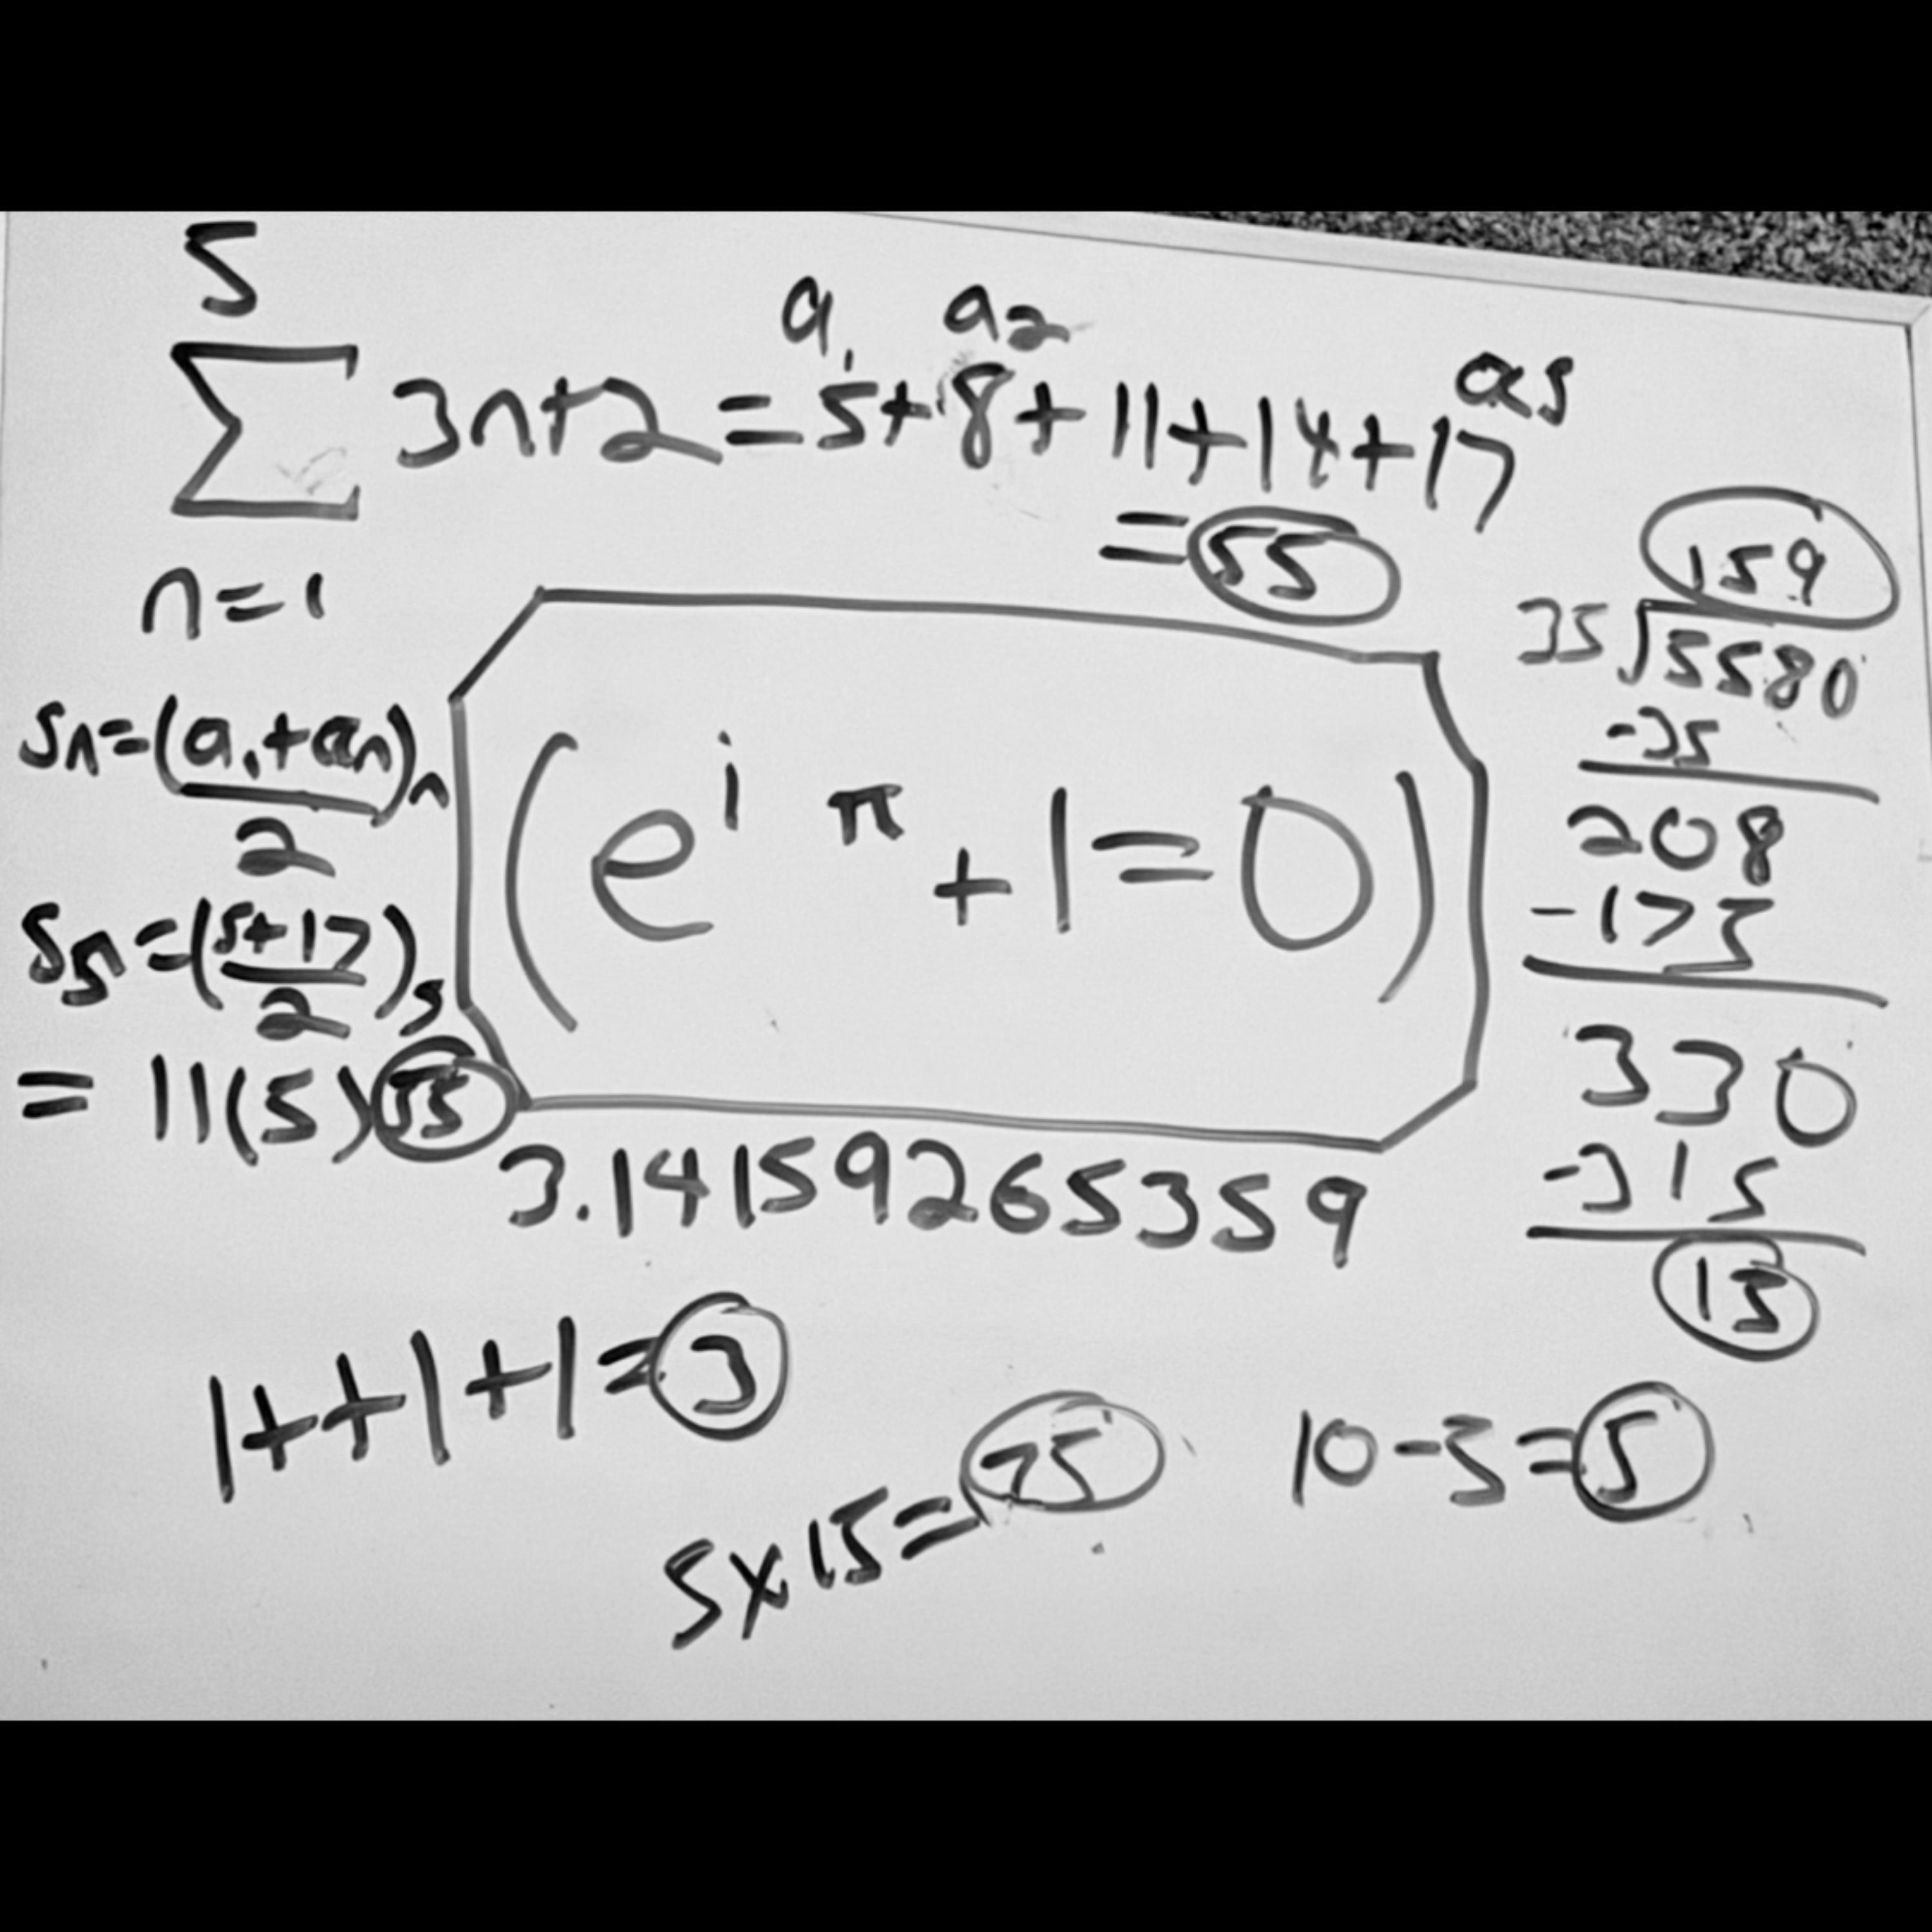 5
a₁ a₂ a5
∑ 3n+2=5+8+11+14+17
n=1
=55
Sn=(a₁+an/2)n
S5=(5+17/2)5
=11(5)55
(e^iπ+1=0)
3.14159265359
159
35)5580
-35
208
-175
330
-315
15
1++1+1=3
5x15=75
10-5=5